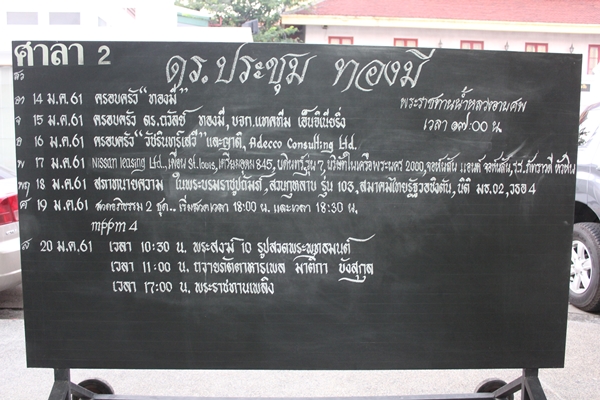 ศาลา 2
ดร.ประชุม ทองมี
พระราชทานน้ำหลวงอาบศพ
เวลา ๑๗:๐๐ น.
อา 14 ม.ค.61 ครอบครัว "ทองมี"
จ 15 ม.ค.61 ครอบครัว ดร.ถวัลย์ ทองมี, บจก.แทคทีม เอ็นจิเนียริ่ง
อ 16 ม.ค.61 ครอบครัว "วัชรินทร์เสวี" และญาติ, Adecco Consulting Ltd.
พ 17 ม.ค.61 Nissan Leasing Ltd., เพื่อน St.louis, เตรียมอุดม 845, บดินทร์ รุ่น 7, บริษัทในเครือพระนคร 2000, จอห์นสัน แอนด์ จอห์นสัน, ร.ร.ภัทราวดี หัวหิน
พฤ 18 ม.ค.61 สภาทนายความ ในพระบรมราชูปถัมภ์, สวนกุหลาบ รุ่น 103, สมาคมไทยรัฐวอชิงตัน, นิติ มธ.02, วธอ 4
ศ 19 ม.ค.61 สวดอภิธรรม 2 ชุด.. เริ่มสวดเวลา 18:00 น. และเวลา 18:30 น.
mppm 4
ส 20 ม.ค.61 เวลา 10:30 น. พระสงฆ์ 10 รูปสวดพระพุทธมนต์
เวลา 11:00 น. ถวายภัตตาหารเพล มาติกา บังสุกุล
เวลา 17:00 น. พระราชทานเพลิง